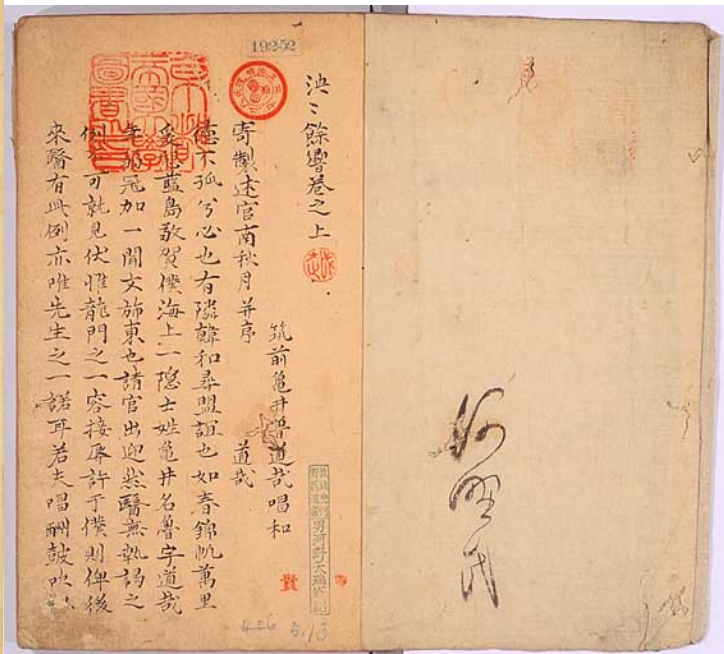 19252
泱〻餘響巻之上
筑前亀井魯道哉唱和
寄製述官南秋月 并序 道哉
德不孤兮心也有隣韓和尋盟誼也如春錦帆萬里
爰憩藍島敬賀僕海上一隠士姓亀井名魯字道哉
年弱冠加一聞文旆東也諸官出迎然醫無執謁之
例不可就見伏惟龍門之一容接辱許于僕則俾後
來醫有此例亦唯先生之一諾耳若夫唱酬鼓吹
貴
河野氏